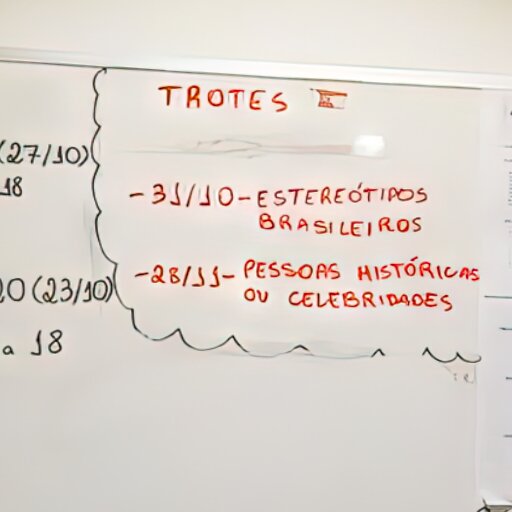 TROTES
(27/10)
18
- 31/10 - ESTEREÓTIPOS
BRASILEIROS
20 (23/10)
a 18
- 28/11 - PESSOAS HISTÓRICAS
OU CELEBRIDADES